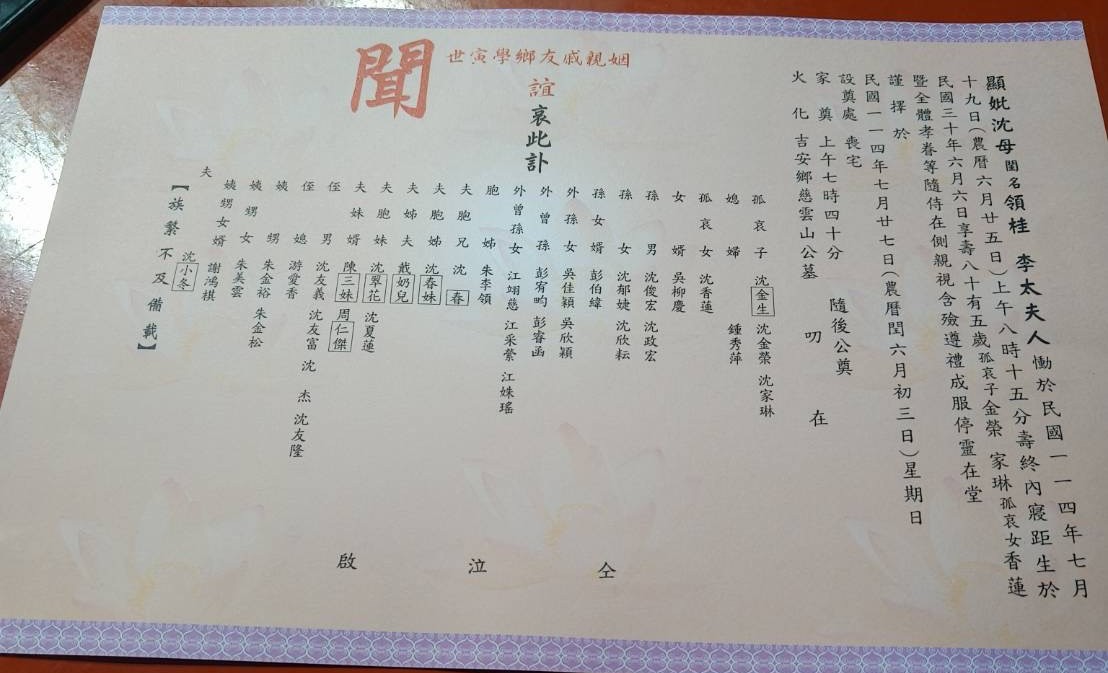 顯妣沈母閨名領桂 李太夫人慟於民國一一四年七月
十九日(農曆六月廿五日)上午八時十五分壽終內寢距生於
民國三十年六月六日享壽八十有五歲孤哀子金榮 家琳孤哀女香蓮
暨全體孝眷等隨侍在側親視含殮遵禮成服停靈在堂
謹擇於
民國一一四年七月廿七日(農曆閏六月初三日)星期日
設奠處 喪宅
家奠 上午七時四十分 隨後公奠
火化 吉安鄉慈雲山公墓 叨在
姻親戚友鄉學寅世
誼
哀此訃
聞
孤哀子 沈金生 沈金榮 沈家琳
媳婦 鍾秀萍
孤哀女 沈香蓮
女婿 吳柳慶
孫男 沈俊宏 沈政宏
孫女 沈郁婕 沈欣耘
孫女婿 彭伯緯
外孫女 吳佳穎 吳欣穎
外曾孫 彭宥昀 彭睿函
外曾孫女 江翊慈 江采縈 江姝瑤
胞姊 朱李領
夫胞兄 沈春
夫胞姊 沈春妹
夫姊夫 戴奶兒
夫胞妹 沈翠花 沈夏蓮
夫妹婿 陳三妹 周仁傑
侄男 沈友義 沈友富 沈杰 沈友隆
侄媳 游愛香
姨甥 朱金裕 朱金松
姨甥女 朱美雲
姨甥女婿 謝鴻棋
夫 沈小冬
【族繁不及備載】
仝泣啟